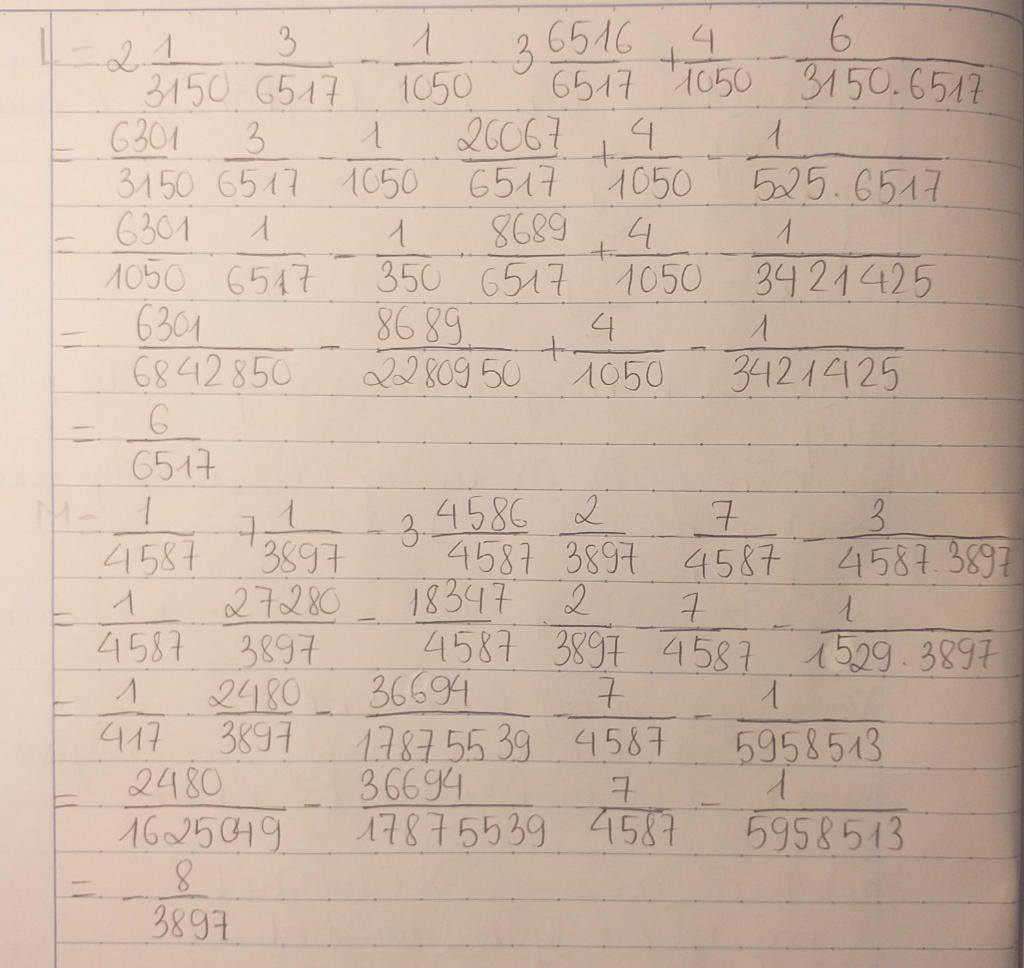 L = 2 1/3150 · 3/6517 - 1/1050 · 3 6516/6517 + 4/1050 - 6/3150.6517
= 6301/3150 · 3/6517 - 1/1050 · 26067/6517 + 4/1050 - 1/525.6517
= 6301/1050 · 1/6517 - 1/350 · 8689/6517 + 4/1050 - 1/3421425
= 6301/6842850 - 8689/2280950 + 4/1050 - 1/3421425
= 6/6517
M = 1/4587 · 7 1/3897 - 3 4586/4587 · 2/3897 - 7/4587 - 3/4587.3897
= 1/4587 · 27280/3897 - 18347/4587 · 2/3897 - 7/4587 - 1/1529.3897
= 1/417 · 2480/3897 - 36694/17875539 - 7/4587 - 1/5958513
= 2480/1625049 - 36694/17875539 - 7/4587 - 1/5958513
= - 8/3897